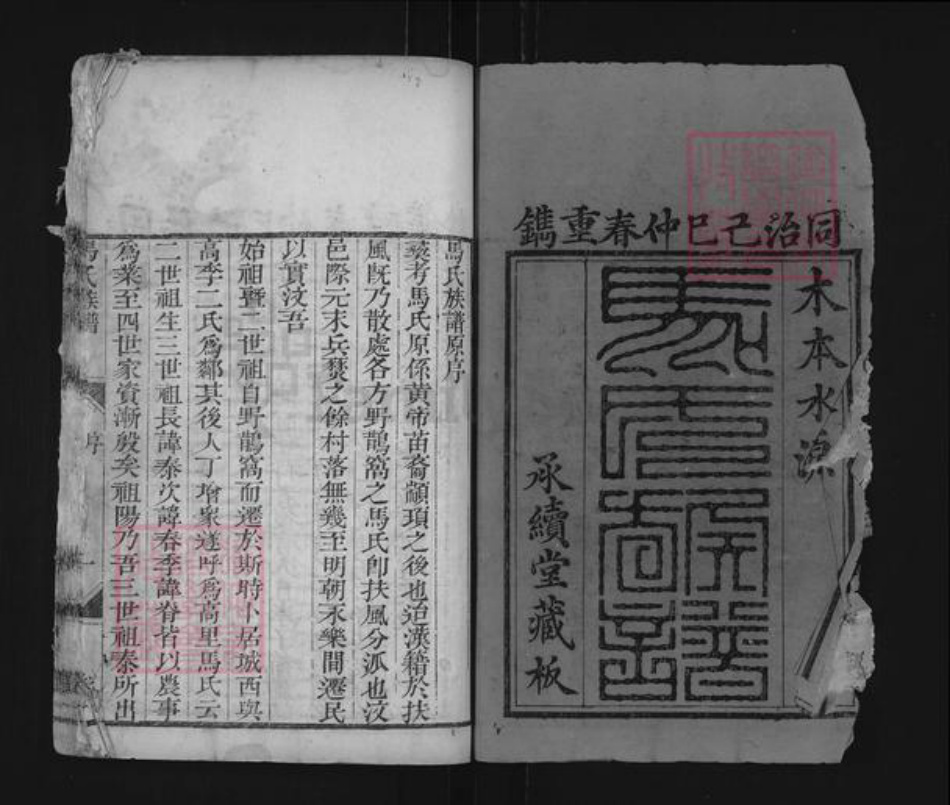 同治己巳仲春重鐫
木本水源
馬氏族譜
承續堂藏板
馬氏族譜原序
嘗考馬氏原係黃帝苗裔顓頊之後也迨漢籍於扶
風旣乃散處各方野鵲窩之馬氏卽扶風分派也汶
邑際元末兵燹之餘村落無幾至明朝永樂間遷民
以實汶吾
始祖暨二世祖自野鵲窩而遷於斯時卜居城西與
高李二氏爲鄰其後人丁增衆遂呼爲高里馬氏云
二世祖生三世祖長諱泰次諱春季諱脊皆以農事
爲業至四世家資漸殷矣祖陽乃吾三世祖泰所出
馬氏族譜 序 一